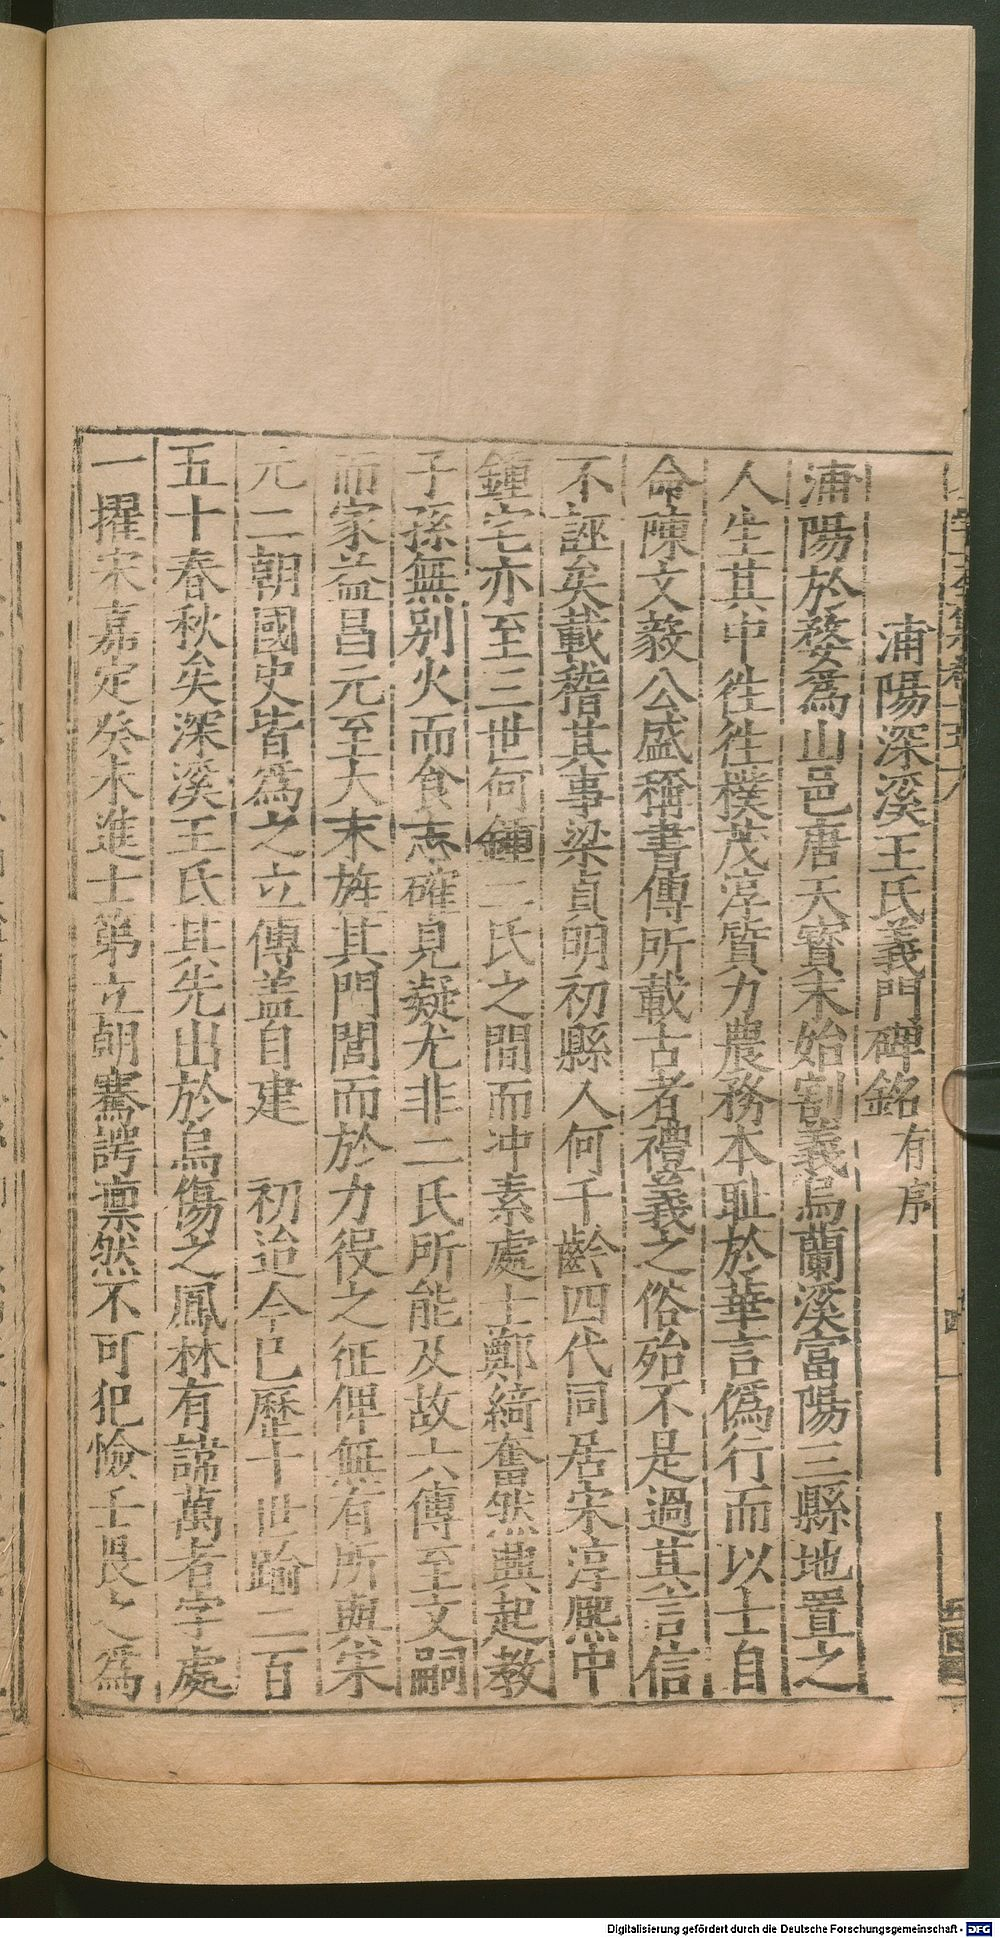 浦陽深溪王氏義門碑銘有序
浦陽於婺爲山邑唐天寳末始割義烏蘭溪富陽三縣地置之
人生其中徃徃樸茂淳質力農務本耻於華言僞行而以士自
命陳文毅公盛稱書傳所載古者禮義之俗殆不是過其言信
不誣矣載稽其事梁貞明初縣人何千齡四代同居宋淳熈中
鍾宅亦至三世何鍾二氏之間而冲素處士鄭綺奮然興起教
子孫無别火而食志確見凝尤非二氏所能及故六傳至文嗣
而家益昌元至大末旌其門閭而於力役之征俾無有所與宋
元二朝國史皆爲之立傳盖自建 初迨今已歷十世踰二百
五十春秋矣深溪王氏其先出於烏傷之鳳林有諱萬者字處
一擢宋嘉定癸未進士第立朝騫諤凛然不可犯憸士畏之爲
Digitalisierung gefördert durch die Deutsche Forschungsgemeinschaft - DFG